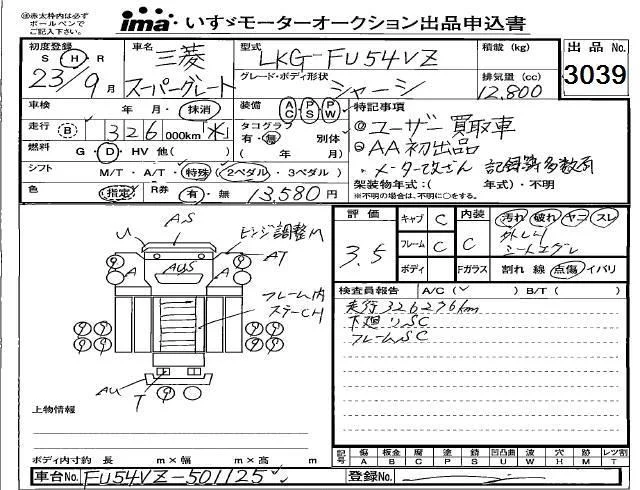 ※赤太枠内は必ず
ボールペンで
ご記入下さい。
ima いすゞモーターオークション出品申込書
初度登録 車名 三菱 型式 LKG-FU54VZ 積載 (kg) 出品 No.
S H R 3039
23年9月 スーパーグレート グレード・ボディ形状 シャーシ 排気量 (cc) 12,800
車検 年・月・抹消 装備 AC PS PW 特記事項
走行 B 326000km 別体
タコグラフ 有・無
◎ユーザー買取車
◎AA初出品
燃料 G・D・HV 他( ) ( 年 月)
シフト M/T・A/T・特殊 (2ペダル・3ペダル)
架装物年式:( 年式)・不明
色 指定 R券 有・無 13,580円 ※不明の場合は、不明に○をする。
評価 3.5 キャブ C 内装 C 汚れ 破れ ヤニ スレ
フレーム C
ボディ Fガラス 割れ 線 点傷 イバリ
U AS ヒンジ調整M
A AUS A AT
フレーム内
ステーCH
AU T
検査員報告 A/C( ) B/T( )
走行326296km
下廻りSC
フレームSC
上物情報
ボディ内寸約 長 m×幅 m×高 m
記号 傷 A 板金 B 腐 C 塗 P 錆 S 凹凸曲 U 波 W 穴 H 無 M レツ割 T
車台No. FU54VZ-501125 登録No.